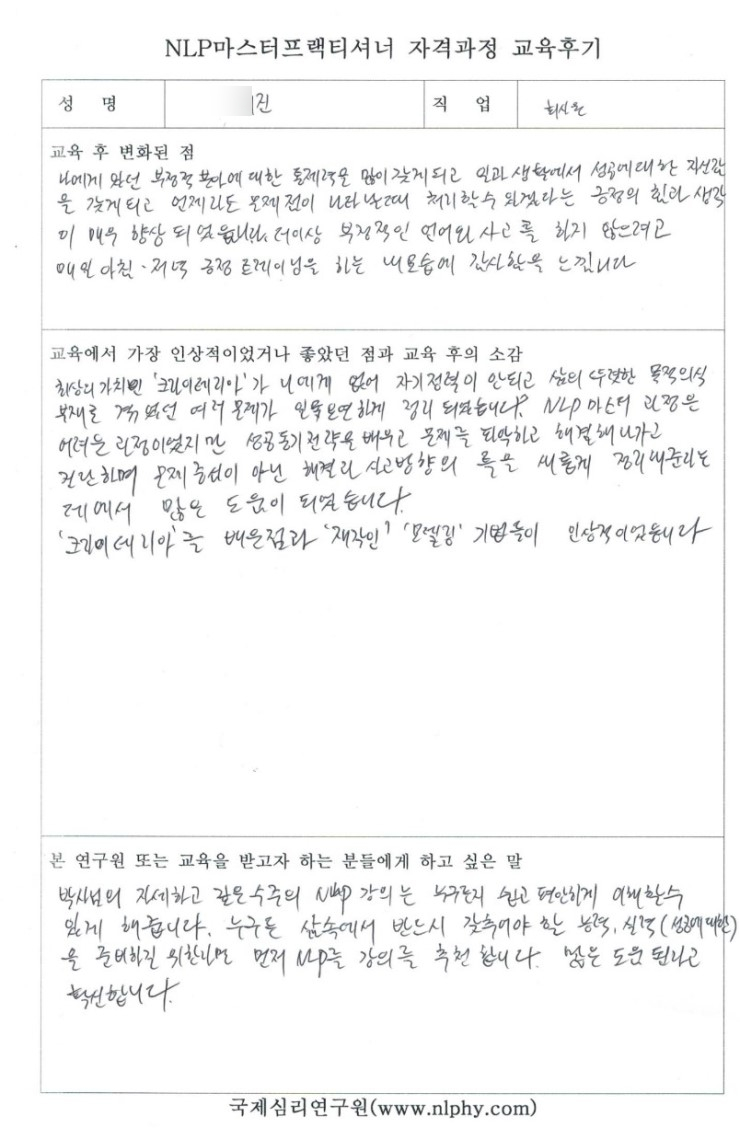 NLP마스터프랙티셔너 자격과정 교육후기
성 명 진 직 업 회사원
교육 후 변화된 점
나에게 있던 부정적 분아에 대한 통제력을 많이 갖게되고 일과 생활에서 성공에 대한 자신감
을 갖게되고 언제라도 문제점이 나타날때 처리할수 있겠다는 긍정의 힘과 생각
이 매우 향상 되었습니다. 더이상 부정적인 언어와 사고를 하지 않으려고
매일 아침·저녁 긍정 트레이닝을 하는 내모습에 감사함을 느낍니다
교육에서 가장 인상적이었거나 좋았던 점과 교육 후의 소감
최상의 가치인 '크라이테리아'가 나에게 없어 자기정렬이 안되고 삶의 뚜렷한 목적의식
부재로 겪었던 여러 문제가 일목요연하게 정리 되었습니다. NLP 마스터 과정은
어려운 과정이었지만 성공동기전략을 배우고 문제를 파악하고 해결해나가고
진단하며 문제 중심이 아닌 해결의 사고방향의 틀을 새롭게 정리해준다는
데에서 많은 도움이 되었습니다.
'크라이테리아'를 배운점과 '재각인' '모델링' 기법들이 인상적이었습니다
본 연구원 또는 교육을 받고자 하는 분들에게 하고 싶은 말
박사님의 자세하고 깊은 수준의 NLP 강의는 누구든지 쉽고 편안하게 이해할수
있게 해줍니다. 누구든 삶속에서 반드시 갖추어야 할 능력, 실력(성공에 대한)
을 준비하길 원한다면 먼저 NLP를 강의를 추천합니다. 많은 도움 된다고
확신합니다.
국제심리연구원(www.nlphy.com)